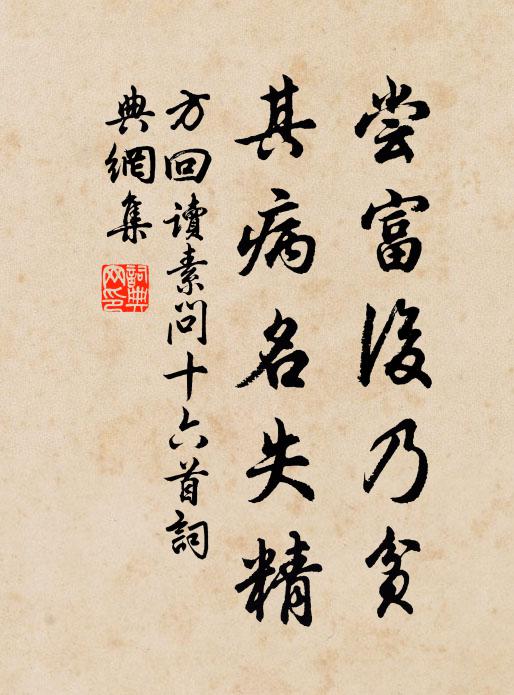 尝富後乃贫
其病名失精
方回讀素问十六首詞
典網集
詞典網印